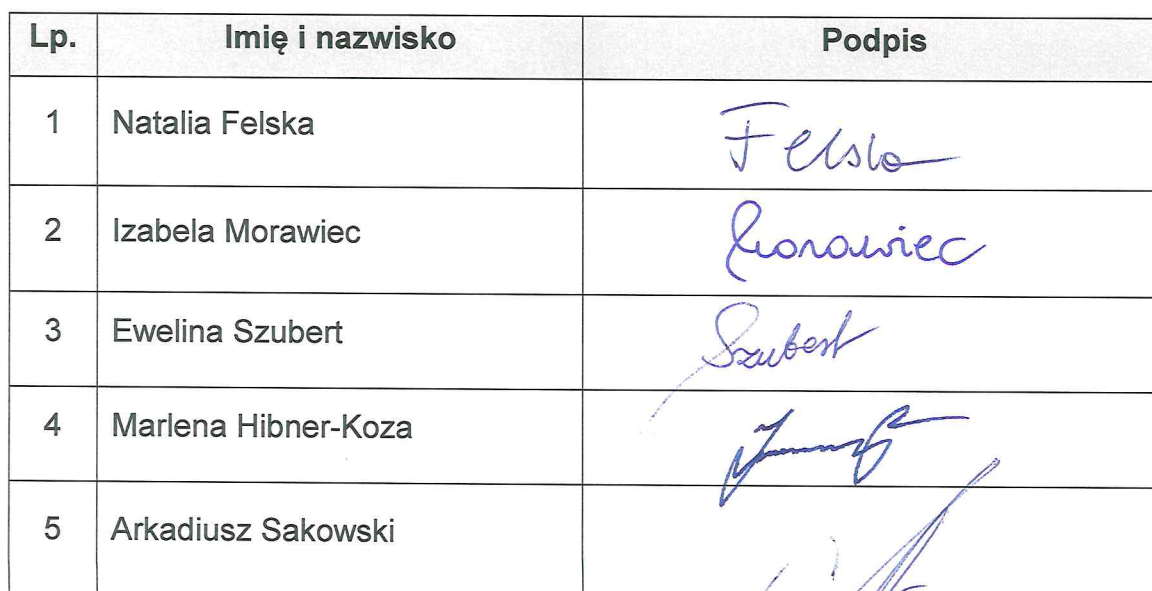 Lp. Imię i nazwisko Podpis
1 Natalia Felska Felska
2 Izabela Morawiec Morawiec
3 Ewelina Szubert Szubert
4 Marlena Hibner-Koza
5 Arkadiusz Sakowski